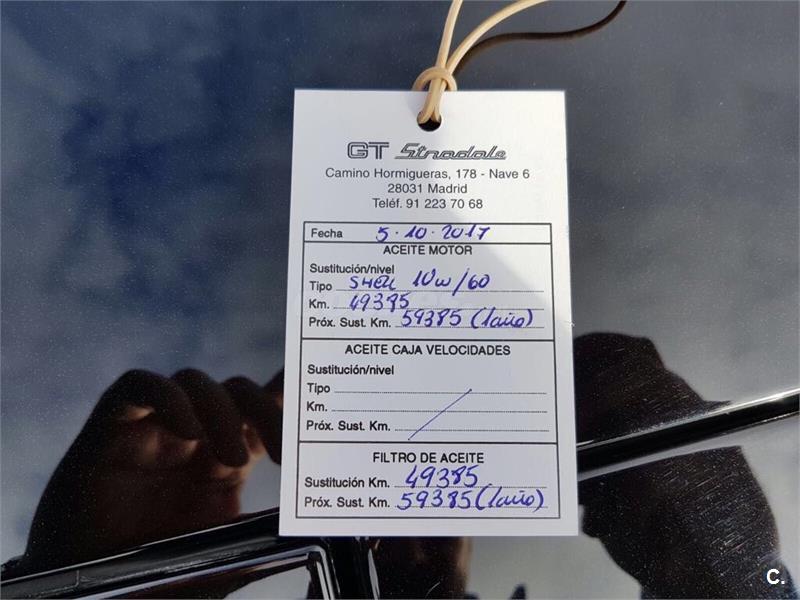 GT Stradale
Camino Hormigueras, 178 - Nave 6
28031 Madrid
Teléf. 91 223 70 68
Fecha 5-10-2017
ACEITE MOTOR
Sustitución/nivel
Tipo SHELL 10w/60
Km. 49385
Próx. Sust. Km. 59385 (1año)
ACEITE CAJA VELOCIDADES
Sustitución/nivel
Tipo
Km.
Próx. Sust. Km.
FILTRO DE ACEITE
Sustitución Km. 49385
Próx. Sust. Km. 59385 (1año)
C.